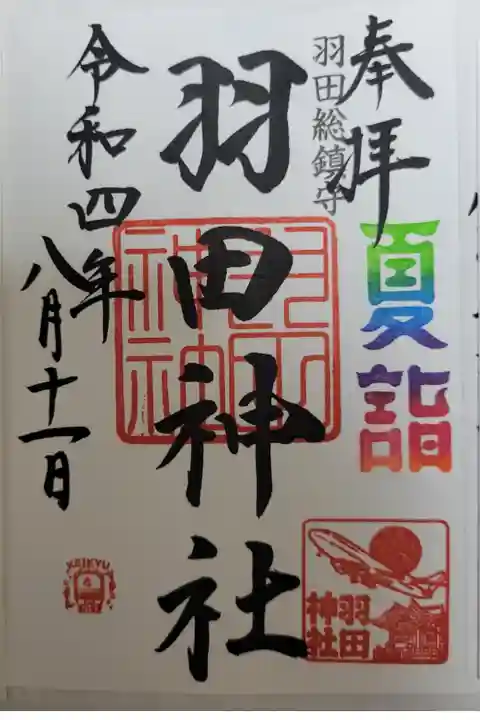 奉拝
羽田総鎮守
夏詣
羽田神社
羽田神社
羽田
神社
令和四年
八月十一日
KEIKYU